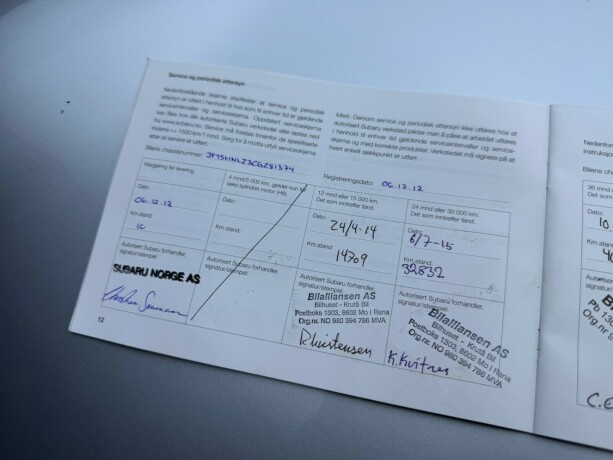 Service og periodisk ettersyn
Nedenforstående skjema stadfester at service og periodisk
ettersyn er utført i henhold til hva som til enhver tid er gjeldende
serviceintervaller og serviceskjema. Oppdatert serviceskjema
kan fåes hos alle autoriserte Subaru verksteder eller lastes ned
fra www.subaru.no. Service må foretas innenfor de spesifiserte
etter at service er utført.
Merk: Dersom service og periodisk ettersyn ikke utføres hos et
autorisert Subaru verksted plikter man å påse at arbeidet utføres
i henhold til enhver tid gjeldende serviceintervaller og service-
skjema og med korrekte produkter. Verkstedet må signere på at
hvert enkelt sjekkpunkt er utført.
Bilens chassisnummer:
Registreringsdato: 06.12.12
Klargjøring før levering.
Dato:
06.12.12
Km.stand:
10
Autorisert Subaru forhandler,
signatur/stempel:
SUBARU NORGE AS
4 mnd/5 000 km, gjelder kun for
seks sylindret motor (H6).
Dato:
Km.stand:
Autorisert Subaru forhandler,
signatur/stempel:
12 mnd eller 15 000 km.
Det som inntreffer først.
Dato:
24/4-14
Km.stand:
14709
Autorisert Subaru forhandler,
signatur/stempel:
Bilalliansen AS
Bilhuset - Krutå Bil
Postboks 1303, 8602 Mo i Rana
Org.nr. NO 980 394 786 MVA
24 mnd eller 30 000 km.
Det som inntreffer først.
Dato:
6/7-15
Km.stand:
32832
Autorisert Subaru forhandler,
signatur/stempel:
Bilalliansen AS
Bilhuset - Krutå Bil
Postboks 1303, 8602 Mo i Rana
Org.nr. NO 980 394 786 MVA
12